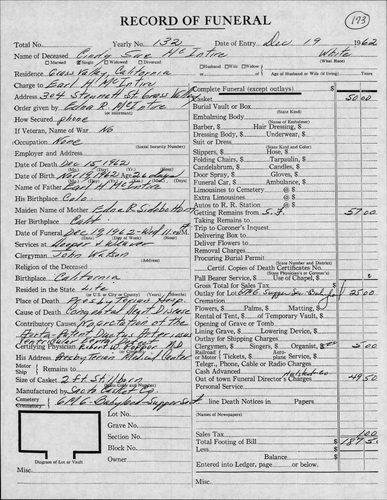 RECORD OF FUNERAL
173
Total No. Yearly No. 132 Date of Entry Dec 19 1962
Name of Deceased Cindy Sue McIntire White
Married Single Widowed Divorced Husband Wife Widow (What Race)
Residence Grass Valley, California of Age of Husband or Wife (if living) Years
Charge to Earl H McIntire
Address 304 St Grass Valley
Order given by Edna R. McIntire
How Secured phone
If Veteran, State War No
Occupation None
(Social Security Number)
Employer and Address
Date of Death Dec 15, 1962
Date of Birth Nov 19, 1962
Name of Father Earl H McIntire
His Birthplace Colo
Maiden Name of Mother Edna R.
Her Birthplace Calif
Date of Funeral Dec 19, 1962 - Wed 11:00 AM
Services at Hooper & Weaver
Clergyman John Watson
Religion of the Deceased
Birthplace California
Resided in the State Life
Place of Death Presbyterian Hosp.
Cause of Death Congenital Heart Disease
Contributory Causes
Certifying Physician
His Address Presbyterian Medical Center
Motor
Ship Remains to
Size of Casket 2 ft Stillborn
Manufactured by Casket Co
Cemetery
Crematory
Lot No.
Grave No.
Section No.
Block No.
Owner
Diagram of Lot or Vault
Misc.
Complete Funeral (except outlays) $
Casket 50 00
Burial Vault or Box
(State Kind)
Embalming Body
Barber, $ Hair Dressing, $
Dressing Body, $ Underwear, $
Suit or Dress
(State Kind and Color)
Slippers, $ Hose, $
Folding Chairs, $ Tarpaulin, $
Candelabrum, $ Candles, $
Door Spray, $ Gloves, $
Funeral Car, $ Ambulance, $
Limousines to Cemetery @ $
Extra Limousines @ $
Autos to R. R. Station @ $
Getting Remains from S.F. 57 00
Taking Remains to
Trip to Coroner's Inquest
Delivering Box to
Deliver Flowers to
Removal Charges
Procuring Burial Permit
Certified Copies of Death Certificates No.
Pall Bearer Service $ Use of Chapel, $
Gross Total for Sales Tax $
Outlay for Lot 25 00
Cremation
Flowers, $ Palms, $ Matting, $
Rental of Tent, $ of Temporary Vault, $
Opening of Grave or Tomb
Lining Grave, $ Lowering Device, $
Outlay for Shipping Charges
Clergyman, $ Singers, $ Organist, $ 5 00
Railroad or Motor Tickets, $ Aeroplane Service, $
Telegr., Phone, Cable or Radio Charges
Cash Advanced
Out of town Funeral Director's Charges 49 50
Personal Service
line Death Notices in Papers
(Names of Newspapers)
Sales Tax 1 00
Total Footing of Bill $
Less
Balance
Entered into Ledger, page or below.
Misc.